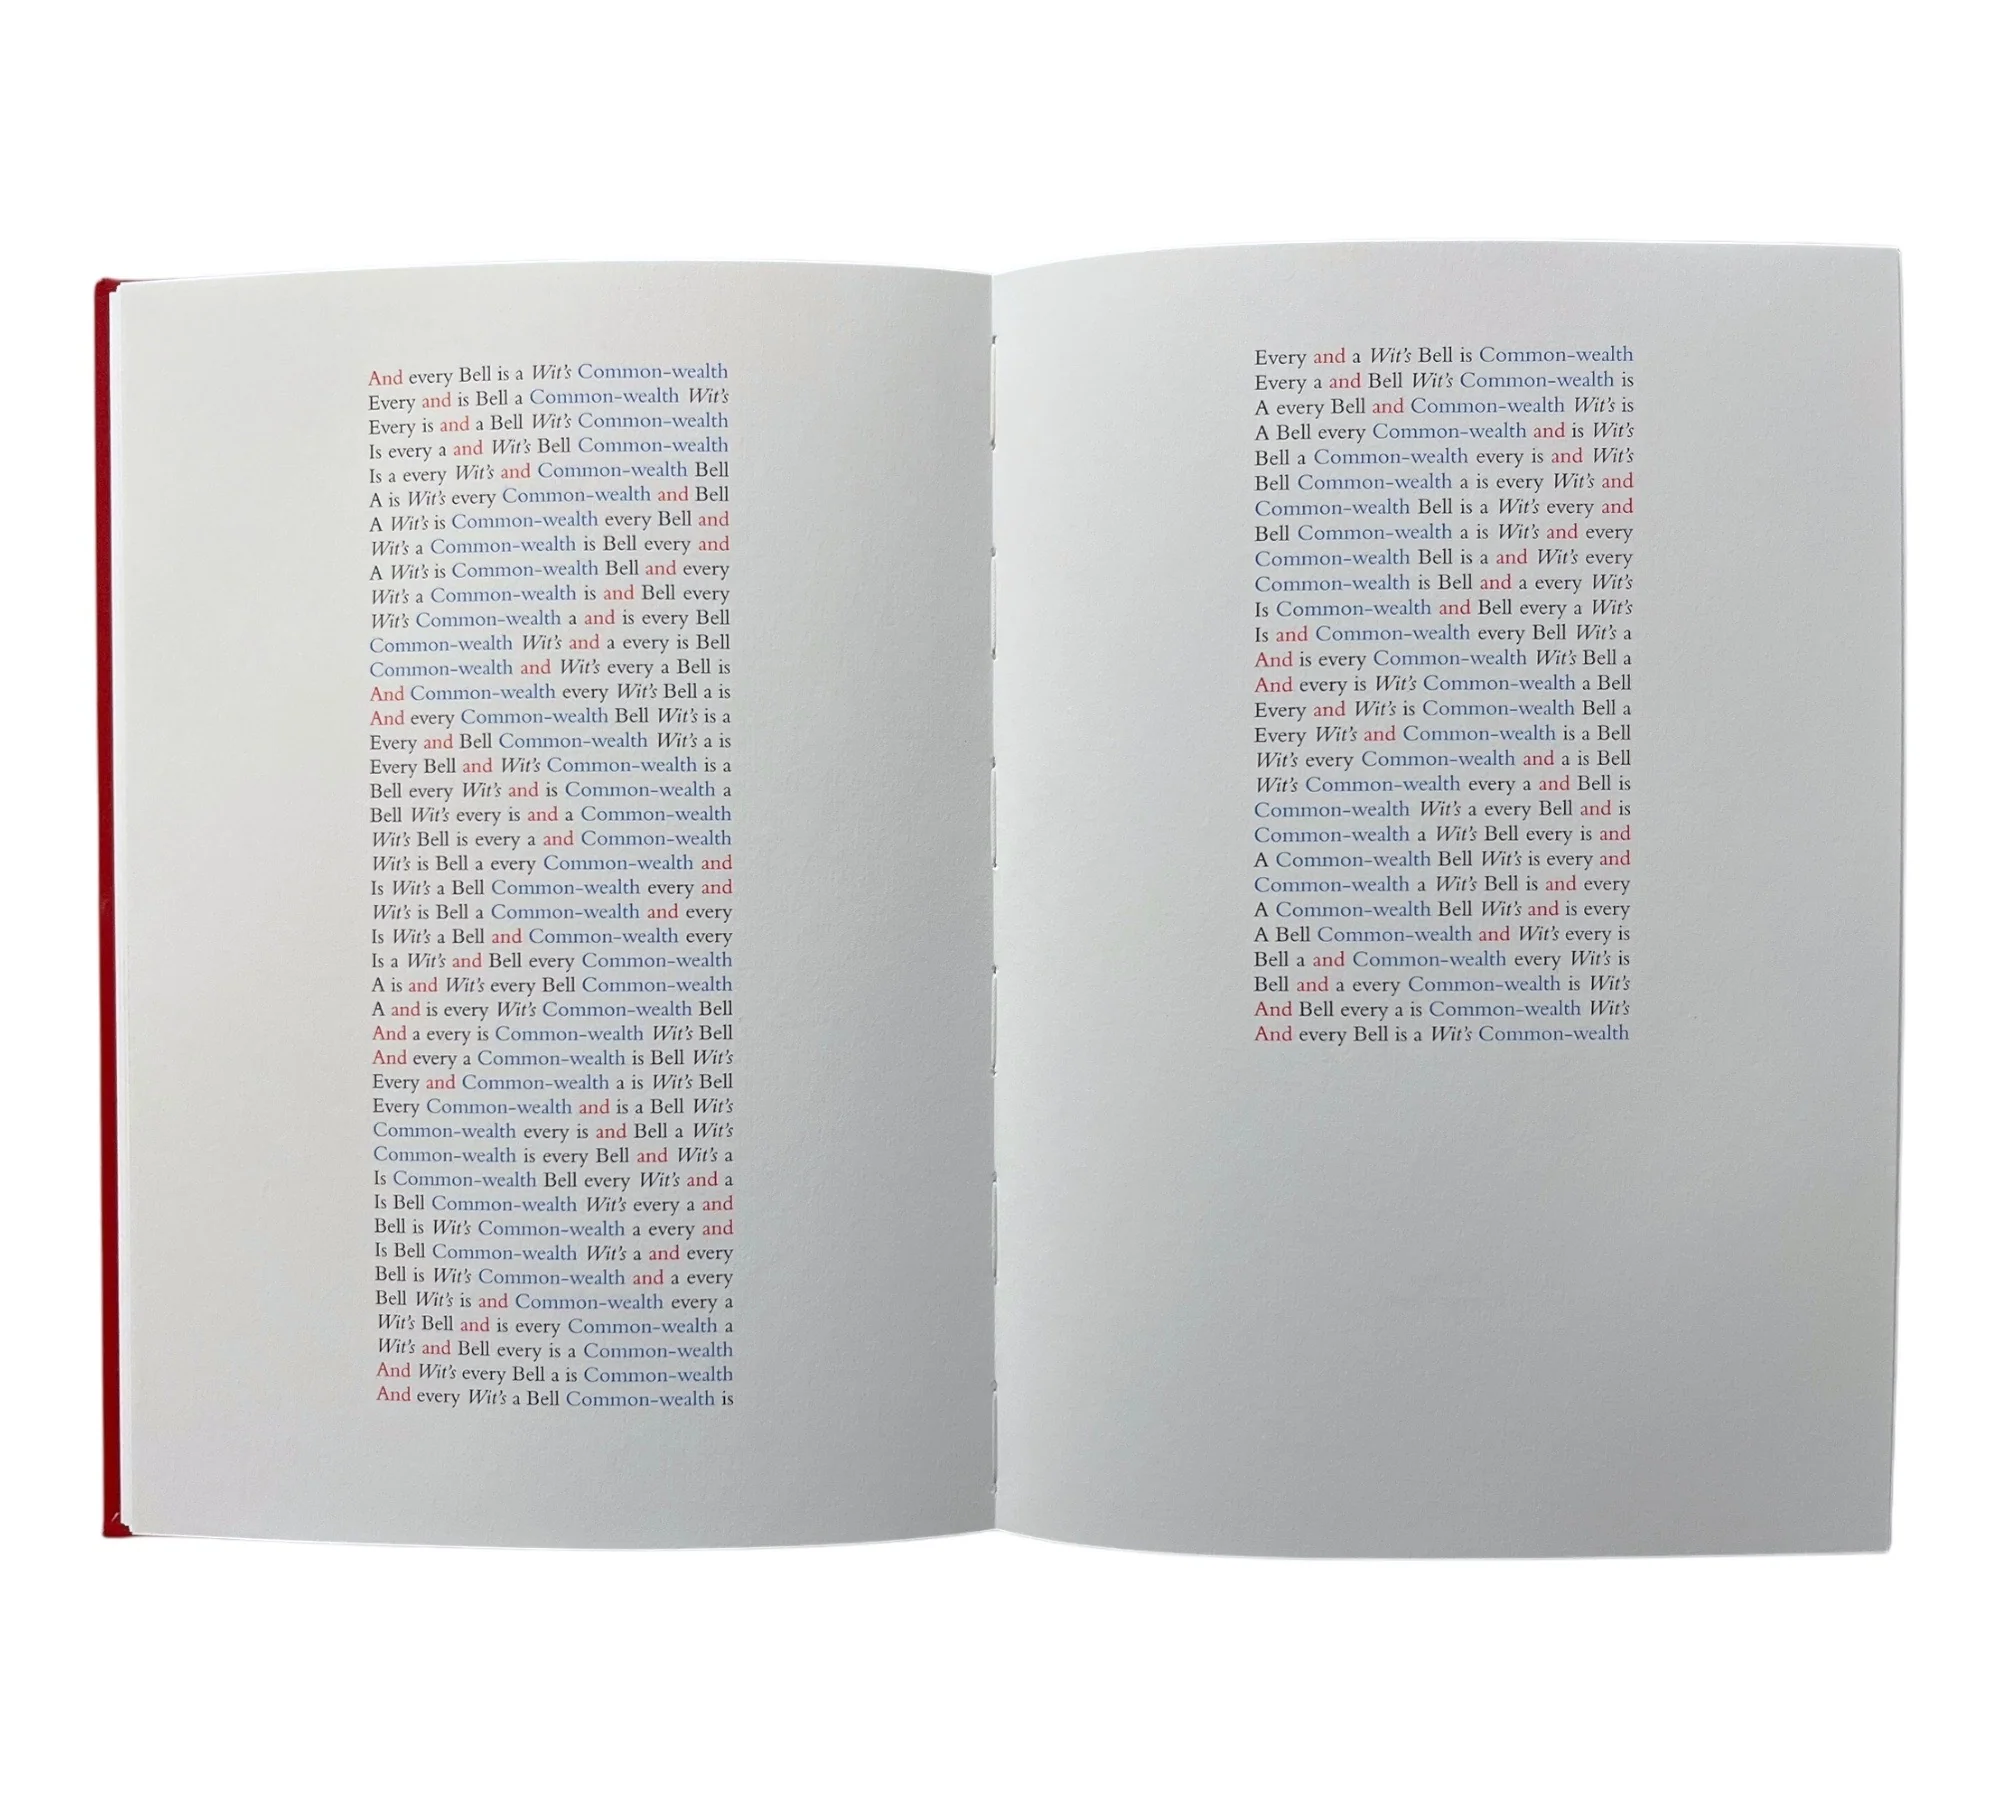 And every Bell is a Wit's Common-wealth
Every and is Bell a Common-wealth Wit's
Every is and a Bell Wit's Common-wealth
Is every a and Wit's Bell Common-wealth
Is a every Wit's and Common-wealth Bell
A is Wit's every Common-wealth and Bell
A Wit's is Common-wealth every Bell and
Wit's a Common-wealth is Bell every and
A Wit's is Common-wealth Bell and every
Wit's a Common-wealth is and Bell every
Wit's Common-wealth a and is every Bell
Common-wealth Wit's and a every is Bell
Common-wealth and Wit's every a Bell is
And Common-wealth every Wit's Bell a is
And every Common-wealth Bell Wit's is a
Every and Bell Common-wealth Wit's a is
Every Bell and Wit's Common-wealth is a
Bell every Wit's and is Common-wealth a
Bell Wit's every is and a Common-wealth
Wit's Bell is every a and Common-wealth
Wit's is Bell a every Common-wealth and
Is Wit's a Bell Common-wealth every and
Wit's is Bell a Common-wealth and every
Is Wit's a Bell and Common-wealth every
Is a Wit's and Bell every Common-wealth
A is and Wit's every Bell Common-wealth
A and is every Wit's Common-wealth Bell
And a every is Common-wealth Wit's Bell
And every a Common-wealth is Bell Wit's
Every and Common-wealth a is Wit's Bell
Every Common-wealth and is a Bell Wit's
Common-wealth every is and Bell a Wit's
Common-wealth is every Bell and Wit's a
Is Common-wealth Bell every Wit's and a
Is Bell Common-wealth Wit's every a and
Bell is Wit's Common-wealth a every and
Is Bell Common-wealth Wit's a and every
Bell is Wit's Common-wealth and a every
Bell Wit's is and Common-wealth every a
Wit's Bell and is every Common-wealth a
Wit's and Bell every is a Common-wealth
And Wit's every Bell a is Common-wealth
And every Wit's a Bell Common-wealth is
Every and a Wit's Bell is Common-wealth
Every a and Bell Wit's Common-wealth is
A every Bell and Common-wealth Wit's is
A Bell every Common-wealth and is Wit's
Bell a Common-wealth every is and Wit's
Bell Common-wealth a is every Wit's and
Common-wealth Bell is a Wit's every and
Bell Common-wealth a is Wit's and every
Common-wealth Bell is a and Wit's every
Common-wealth is Bell and a every Wit's
Is Common-wealth and Bell every a Wit's
Is and Common-wealth every Bell Wit's a
And is every Common-wealth Wit's Bell a
And every is Wit's Common-wealth a Bell
Every and Wit's is Common-wealth Bell a
Every Wit's and Common-wealth is a Bell
Wit's every Common-wealth and a is Bell
Wit's Common-wealth every a and Bell is
Common-wealth Wit's a every Bell and is
Common-wealth a Wit's Bell every is and
A Common-wealth Bell Wit's is every and
Common-wealth a Wit's Bell is and every
A Common-wealth Bell Wit's and is every
A Bell Common-wealth and Wit's every is
Bell a and Common-wealth every Wit's is
Bell and a every Common-wealth is Wit's
And Bell every a is Common-wealth Wit's
And every Bell is a Wit's Common-wealth